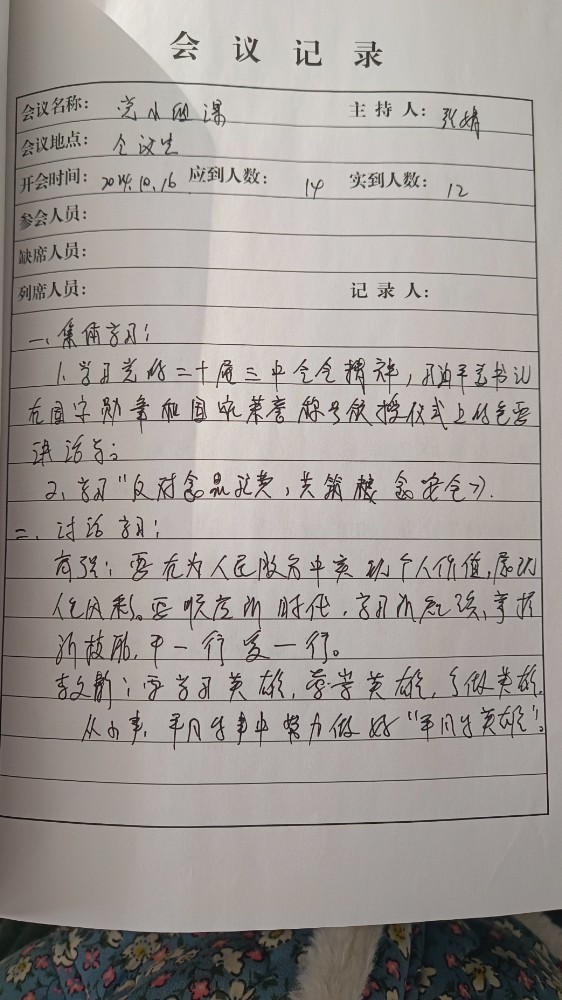 会议记录
会议名称： 党小组课 主持人： 张婧
会议地点： 会议室
开会时间： 2024.10.16 应到人数： 14 实到人数： 12
参会人员：
缺席人员：
列席人员： 记录人：
一、集体学习：
1.学习党的二十届三中全会精神，习近平总书记
在国家勋章和国家荣誉称号颁授仪式上的重要
讲话等；
2、学习“反对食品浪费，共筑粮食安全》.
二、讨论学习：
要在为人民服务中实现个人价值，展现
人生风彩。要顺应新时代，学习新知识，掌握
新技能，干一行爱一行。
李文静：要学习英雄，尊崇英雄，争做英雄，
从小事，平凡的事中努力做好“平凡的英雄”。